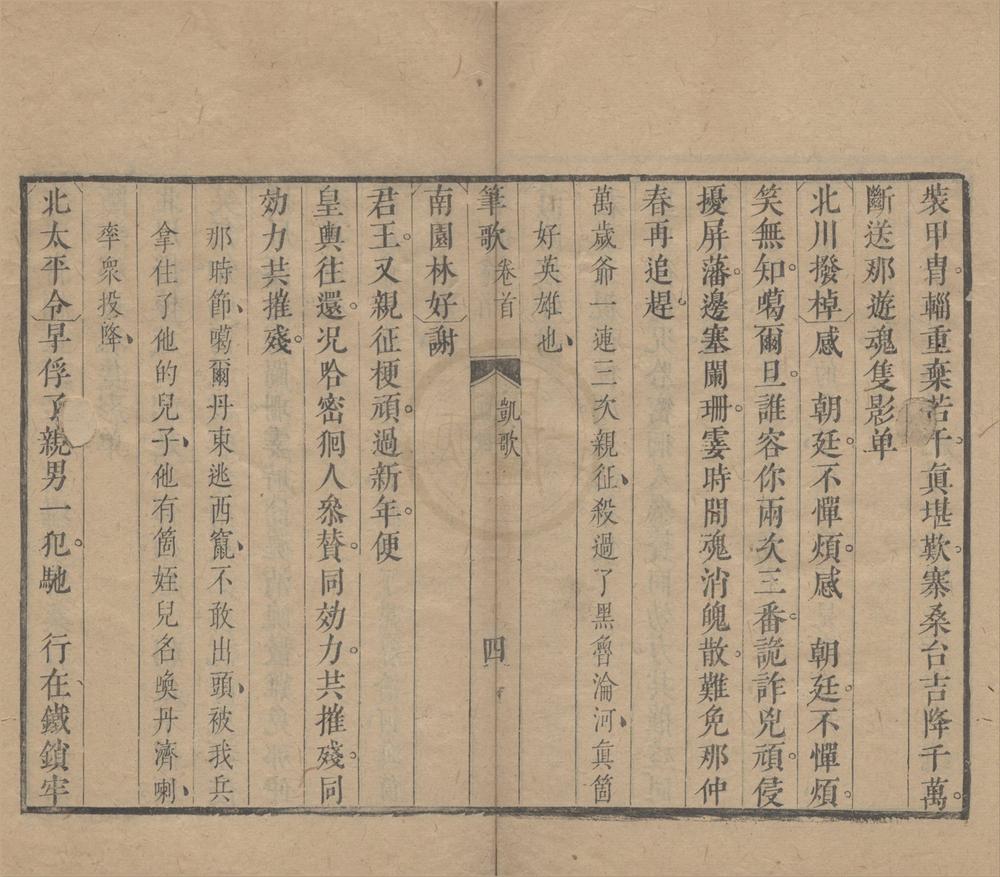 裝甲冑。輜重棄若干。眞堪歎。寨桑台吉降千萬。
斷送那遊魂隻影单
北川撥棹感　朝廷。不憚煩。感　朝廷。不憚煩。
笑無知。噶爾旦。誰容你兩次三番。詭詐兇頑。侵
擾屏藩。邊塞闌珊。霎時間魂消魄散。難免那仲
春再追趕。
萬歲爺一連三次親征、殺過了黑魯淪河、眞箇
好英雄也、
筆歌　卷首　凱歌　四
南園林好謝
君王。又親征梗頑。過新年。便
皇輿往還。况哈密徊人叅賛。同効力。共摧殘。同
効力共摧殘。
那時節、噶爾丹東逃西竄、不敢出頭、被我兵
拿住了他的兒子、他有箇姪兒名喚丹濟喇、
率衆投降、
北太平令早俘了親男一犯。馳　行在鐵鎖牢